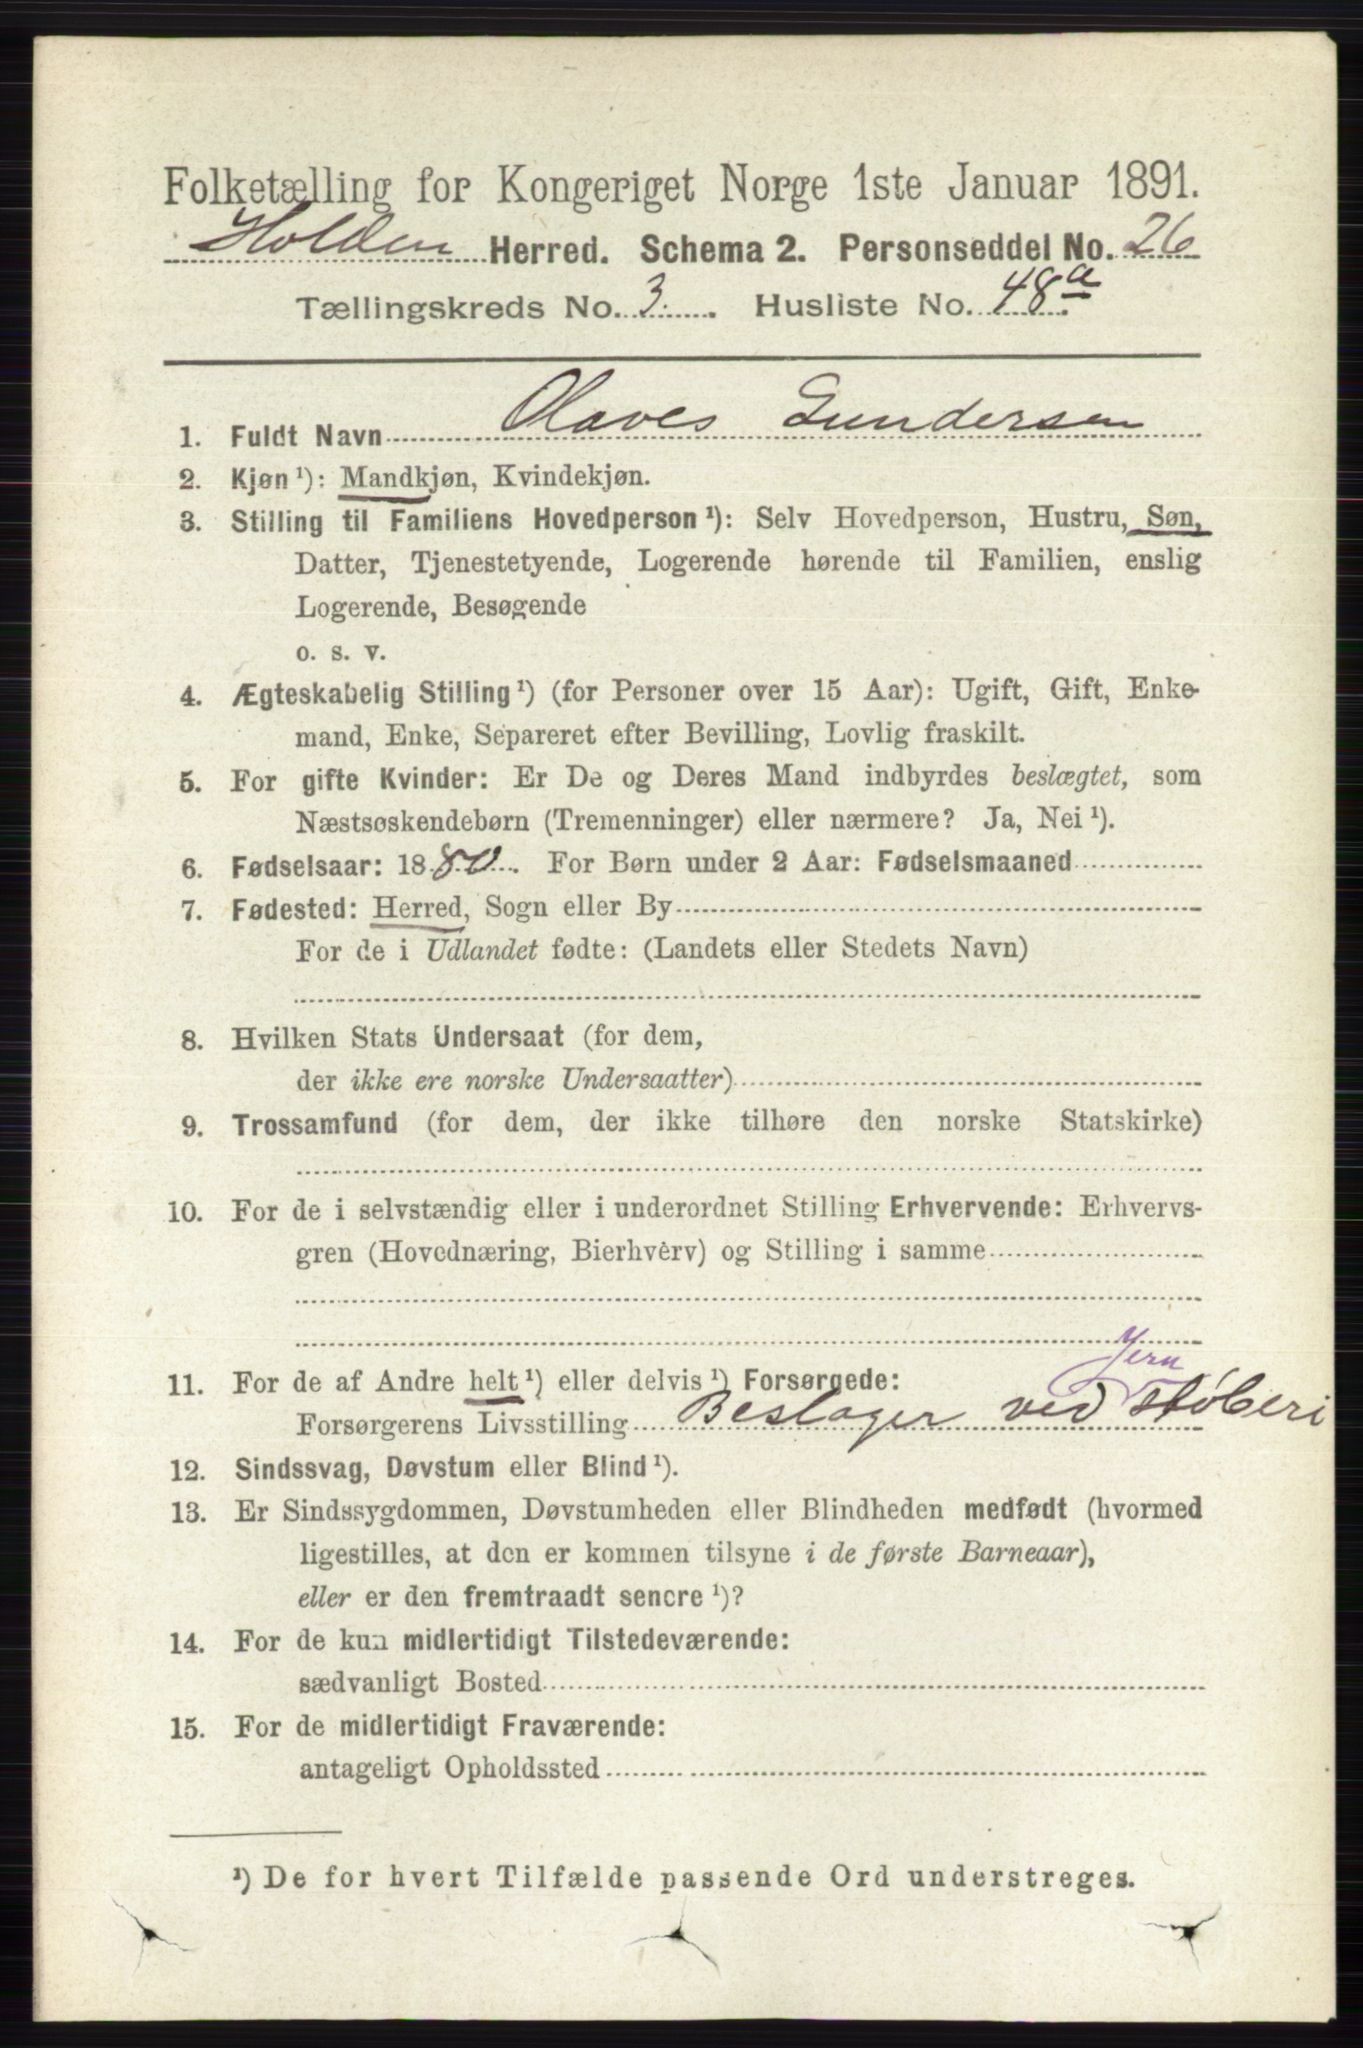 Folketælling for Kongeriget Norge 1ste Januar 1891.
Holden Herred. Schema 2. Personseddel No. 26
Tællingskreds No. 3. Husliste No. 48 a.
1. Fuldt Navn Olaves Gundersen
2. Kjøn ¹): Mandkjøn, Kvindekjøn.
3. Stilling til Familiens Hovedperson ¹): Selv Hovedperson, Hustru, Søn,
Datter, Tjenestetyende, Logerende hørende til Familien, enslig
Logerende, Besøgende
o. s. v.
4. Ægteskabelig Stilling ¹) (for Personer over 15 Aar): Ugift, Gift, Enke-
mand, Enke, Separeret efter Bevilling, Lovlig fraskilt.
5. For gifte Kvinder: Er De og Deres Mand indbyrdes beslægtet, som
Næstsøskendebørn (Tremenninger) eller nærmere? Ja, Nei ¹).
6. Fødselsaar: 1880. For Børn under 2 Aar: Fødselsmaaned
7. Fødested: Herred, Sogn eller By
For de i Udlandet fødte: (Landets eller Stedets Navn)
8. Hvilken Stats Undersaat (for dem,
der ikke ere norske Undersaatter)
9. Trossamfund (for dem, der ikke tilhøre den norske Statskirke)
10. For de i selvstændig eller i underordnet Stilling Erhvervende: Erhvervs-
gren (Hovednæring, Bierhverv) og Stilling i samme
Jern
11. For de af Andre helt ¹) eller delvis ¹) Forsørgede:
Forsørgerens Livsstilling Beslager ved støberi
12. Sindssvag, Døvstum eller Blind ¹).
13. Er Sindssygdommen, Døvstumheden eller Blindheden medfødt (hvormed
ligestilles, at den er kommen tilsyne i de første Barneaar),
eller er den fremtraadt senere ¹)?
14. For de kun midlertidigt Tilstedeværende:
sædvanligt Bosted
15. For de midlertidigt Fraværende:
antageligt Opholdssted
¹) De for hvert Tilfælde passende Ord understreges.